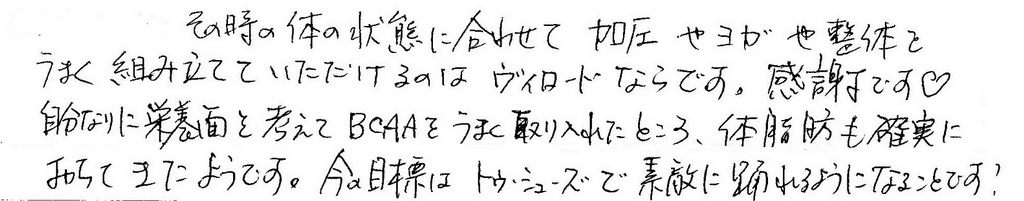 その時の体の状態に合わせて 加圧 やヨガ や整体と
うまく 組み立てて いただけるのは ヴィロード ならです。感謝です♡
自分なりに栄養面を考えて BCAAを うまく取り入れたところ、体脂肪も確実に
おちて きたようです。今の目標は トゥ・シューズで 素敵に踊れるようになることです!